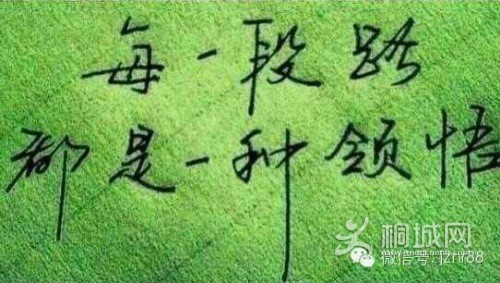 每一段路
都是一种领悟
桐城网
微信号: jzrir88